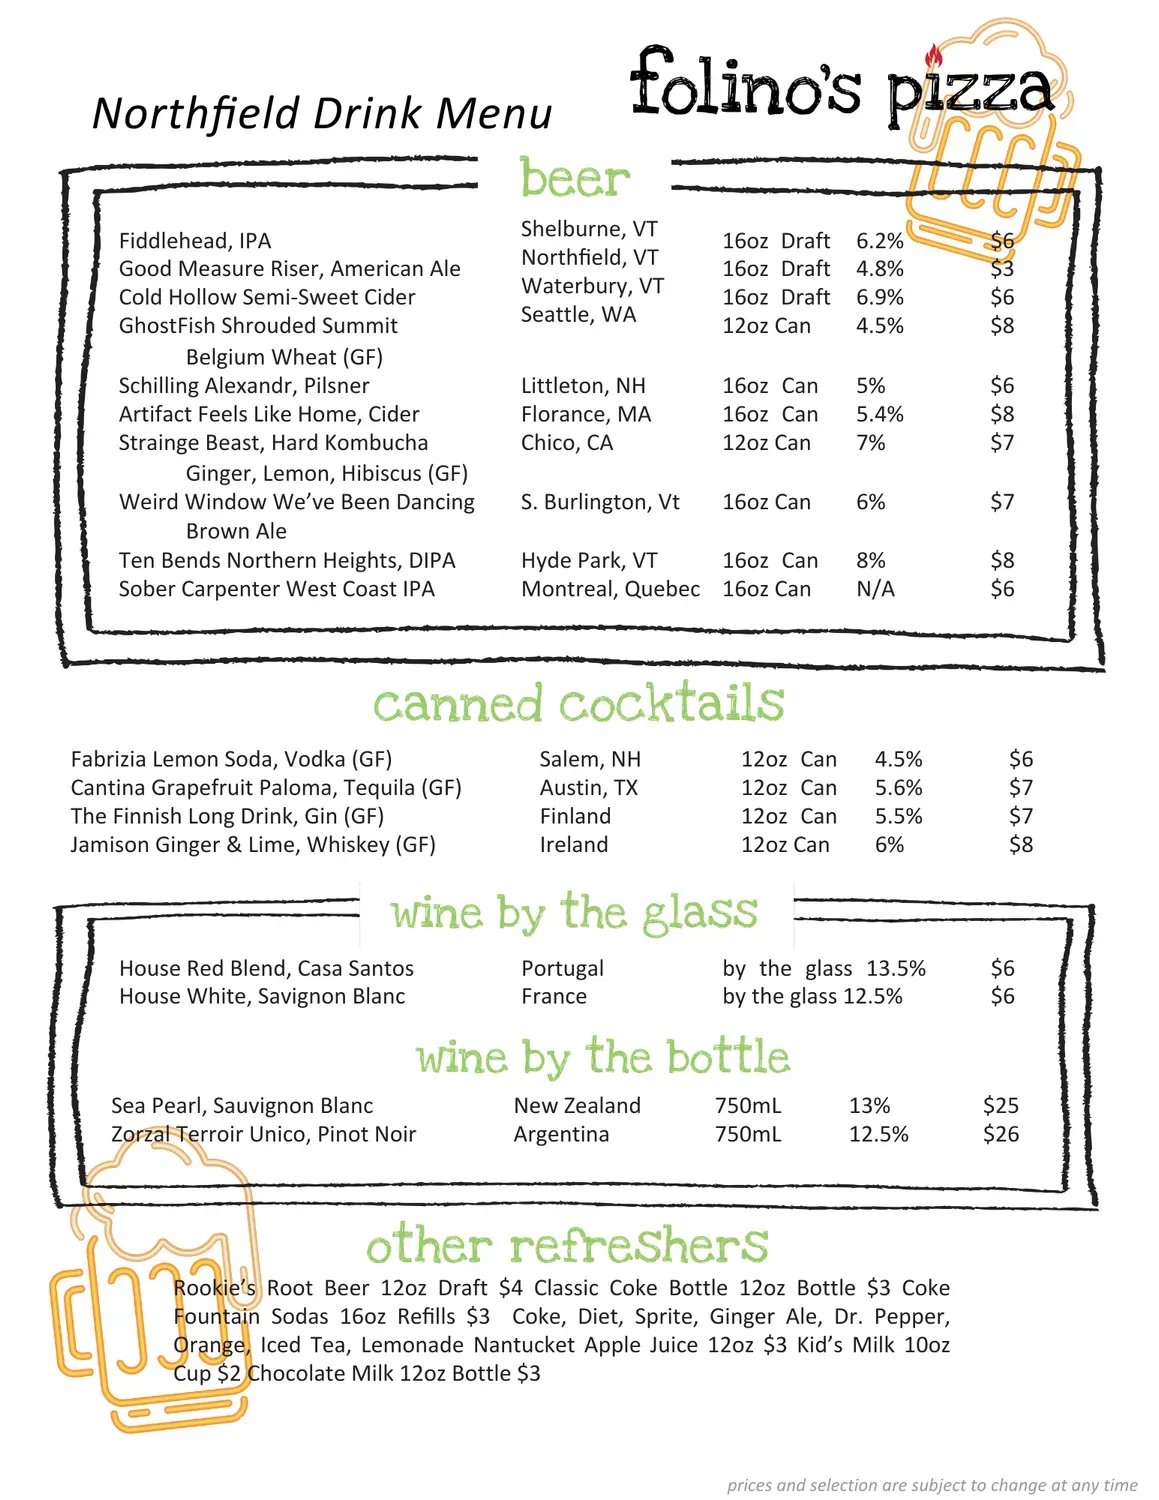 folino's pizza
Northfield Drink Menu
beer
Fiddlehead, IPA Shelburne, VT 16oz Draft 6.2% $6
Good Measure Riser, American Ale Northfield, VT 16oz Draft 4.8% $3
Cold Hollow Semi-Sweet Cider Waterbury, VT 16oz Draft 6.9% $6
GhostFish Shrouded Summit Seattle, WA 12oz Can 4.5% $8
Belgium Wheat (GF)
Schilling Alexandr, Pilsner Littleton, NH 16oz Can 5% $6
Artifact Feels Like Home, Cider Florance, MA 16oz Can 5.4% $8
Strainge Beast, Hard Kombucha Chico, CA 12oz Can 7% $7
Ginger, Lemon, Hibiscus (GF)
Weird Window We've Been Dancing S. Burlington, Vt 16oz Can 6% $7
Brown Ale
Ten Bends Northern Heights, DIPA Hyde Park, VT 16oz Can 8% $8
Sober Carpenter West Coast IPA Montreal, Quebec 16oz Can N/A $6
canned cocktails
Fabrizia Lemon Soda, Vodka (GF) Salem, NH 12oz Can 4.5% $6
Cantina Grapefruit Paloma, Tequila (GF) Austin, TX 12oz Can 5.6% $7
The Finnish Long Drink, Gin (GF) Finland 12oz Can 5.5% $7
Jamison Ginger & Lime, Whiskey (GF) Ireland 12oz Can 6% $8
wine by the glass
House Red Blend, Casa Santos Portugal by the glass 13.5% $6
House White, Savignon Blanc France by the glass 12.5% $6
wine by the bottle
Sea Pearl, Sauvignon Blanc New Zealand 750mL 13% $25
Zorzal Terroir Unico, Pinot Noir Argentina 750mL 12.5% $26
other refreshers
Rookie's Root Beer 12oz Draft $4 Classic Coke Bottle 12oz Bottle $3 Coke
Fountain Sodas 16oz Refills $3 Coke, Diet, Sprite, Ginger Ale, Dr. Pepper,
Orange, Iced Tea, Lemonade Nantucket Apple Juice 12oz $3 Kid's Milk 10oz
Cup $2 Chocolate Milk 12oz Bottle $3
prices and selection are subject to change at any time